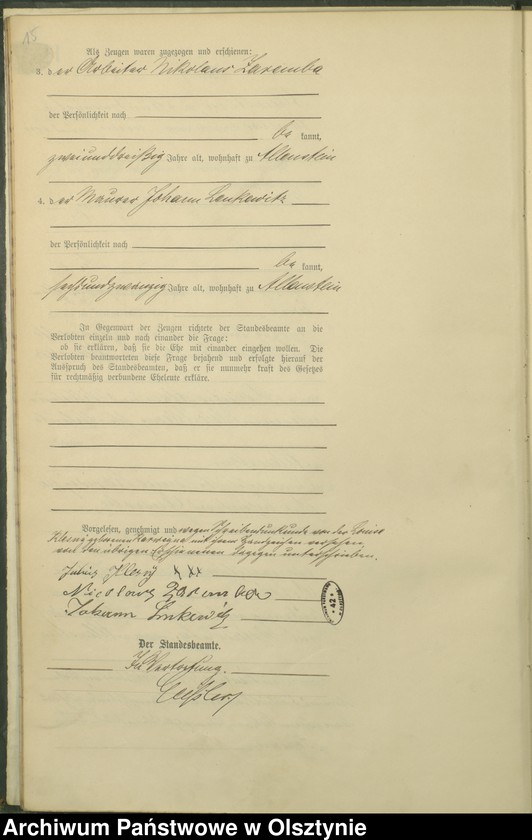 15
Als Zeugen waren zugezogen und erschienen:
3. der Arbeiter Nikolaus Zaremba
der Persönlichkeit nach
be kannt,
zweiunddreißig Jahre alt, wohnhaft zu Allenstein
4. der Maurer Johann Lenkewitz
der Persönlichkeit nach
be kannt,
sechsundzwanzig Jahre alt, wohnhaft zu Allenstein
In Gegenwart der Zeugen richtete der Standesbeamte an die
Verlobten einzeln und nach einander die Frage:
ob sie erklären, daß sie die Ehe mit einander eingehen wollen. Die
Verlobten beantworteten diese Frage bejahend und erfolgte hierauf der
Ausspruch des Standesbeamten, daß er sie nunmehr kraft des Gesetzes
für rechtmäßig verbundene Eheleute erkläre.
Vorgelesen, genehmigt und wegen Schreibensunkunde von der
geborenen mit ihrem Handzeichen versehen,
von den übrigen Erschienenen dagegen unterschrieben.
Julius xxx
Nicolaus Zaremba
Johann
42
Der Standesbeamte.
In Vertretung.
Archiwum Państwowe w Olsztynie